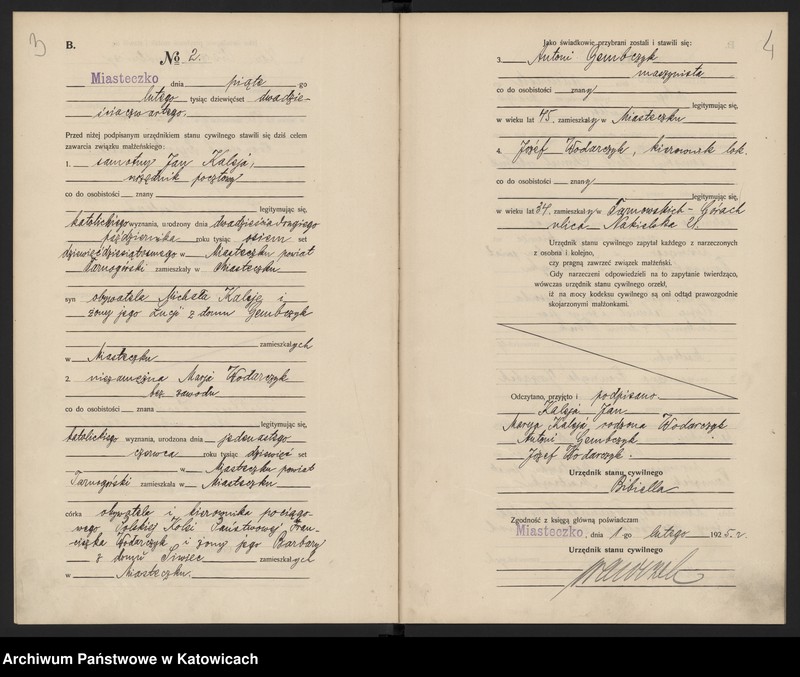 3
B.
No 2.
Miasteczko dnia piąte go
lutego tysiąc dziewięćset dwadzie-
ścia czwartego.
Przed niżej podpisanym urzędnikiem stanu cywilnego stawili się dziś celem
zawarcia związku małżeńskiego:
1. samotny Jan Kalsja,
urzędnik pocztowy
co do osobistości znany
legitymując się,
katolickiego wyznania, urodzony dnia dwadzieścia drugiego
października roku tysiąc osiem set
dziewięćdziesiątowego w Miasteczku powiat
Tarnogórski zamieszkały w Miasteczku
syn obywatela Michała Kalsję i
żony jego Łucji z domu Gembczyk
zamieszkałych
w Miasteczku
2. niezamężna Marja Włodarczyk
bez zawodu
co do osobistości znana
legitymując się,
katolickiego wyznania, urodzona dnia jedenastego
czerwca roku tysiąc dziewięć set
w Miasteczku powiat
Tarnogórski zamieszkała w Miasteczku
córka obywatela i kierownika pociągo-
wego Polskiej Kolei Państwowej Fran-
ciszka Włodarczyk i żony jego Barbary
z domu Siwiec zamieszkałych
w Miasteczku.
4
Jako świadkowie przybrani zostali i stawili się:
3. Antoni Gembczyk
maszynista
co do osobistości znany
legitymując się,
w wieku lat 45. zamieszkały w Miasteczku
4. Józef Włodarczyk, kierownik lok.
co do osobistości znany
legitymując się,
w wieku lat 34. zamieszkały w Tarnowskich-Górach
ulica Nakielska 21.
Urzędnik stanu cywilnego zapytał każdego z narzeczonych
z osobna i kolejno,
czy pragną zawrzeć związek małżeński.
Gdy narzeczeni odpowiedzieli na to zapytanie twierdząco,
wówczas urzędnik stanu cywilnego orzekł,
iż na mocy kodeksu cywilnego są oni odtąd prawozgodnie
skojarzonymi małżonkami.
Odczytano, przyjęto i podpisano
Kalsja Jan
Marya Kalsja, rodzona Włodarczyk
Antoni Gembczyk
Józef Włodarczyk.
Urzędnik stanu cywilnego
Bibiella
Zgodność z księgą główną poświadczam
Miasteczko, dnia 1-go lutego 1925. r.
Urzędnik stanu cywilnego
Archiwum Państwowe w Katowicach